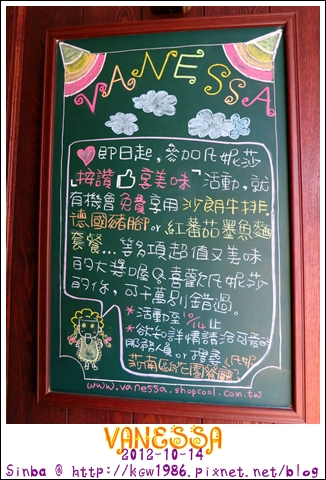 VANESSA
即日起，參加凡妮莎
「按讚 享美味」活動，就
有機會免費享用沙朗牛排
德國豬腳or紅蕃茄墨魚麵
套餐...等多項超值又美味
的大獎喔!喜歡凡妮莎
的你，可千萬別錯過。
*活動至10/14止
*欲知詳情請洽可愛的
服務人員or搜尋(凡妮
莎南歐花園餐廳)
www.vanessa.shopcool.com.tw
VANESSA
2012-10-14
Sinba @ http://kgw1986.pixnet.net/blog